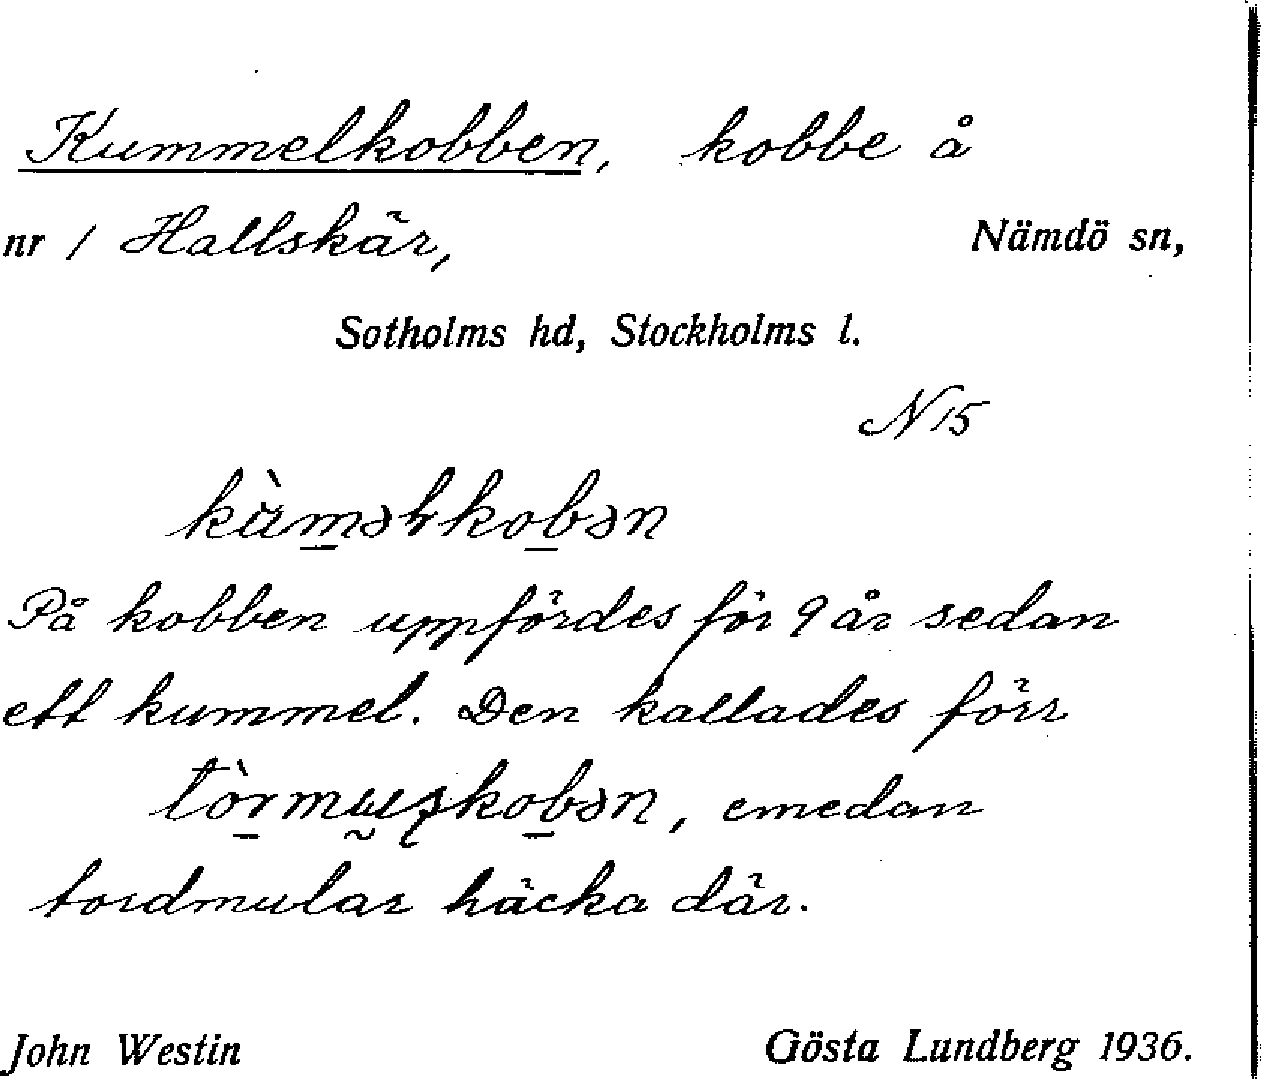 Kummelkobben, kobbe å
nr 1 Hallskär, Nämdö sn,
Sotholms hd, Stockholms l.
N 15
På kobben uppfördes för 9 år sedan
ett kummel. Den kallades förr
emedan
tordmular häcka där.
John Westin Gösta Lundberg 1936.